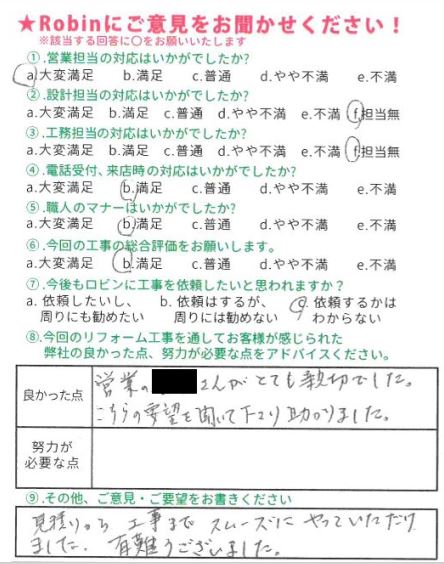 ★Robinにご意見をお聞かせください！
※該当する回答に〇をお願いいたします
①.営業担当の対応はいかがでしたか?
a.大変満足 b.満足 c.普通 d.やや不満 e.不満
②.設計担当の対応はいかがでしたか?
a.大変満足 b.満足 c.普通 d.やや不満 e.不満 f.担当無
③.工務担当の対応はいかがでしたか?
a.大変満足 b.満足 c.普通 d.やや不満 e.不満 f.担当無
④.電話受付、来店時の対応はいかがでしたか?
a.大変満足 b.満足 c.普通 d.やや不満 e.不満
⑤.職人のマナーはいかがでしたか?
a.大変満足 b.満足 c.普通 d.やや不満 e.不満
⑥.今回の工事の総合評価をお願いします。
a.大変満足 b.満足 c.普通 d.やや不満 e.不満
⑦.今後もロビンに工事を依頼したいと思われますか？
a. 依頼したいし、 b. 依頼はするが、 c. 依頼するかは
周りにも勧めたい 周りには勧めない わからない
⑧.今回のリフォーム工事を通してお客様が感じられた
弊社の良かった点、努力が必要な点をアドバイスください。
良かった点
営業の さんがとても親切でした。
こちらの要望を聞いて下さり助かりました。
努力が
必要な点
⑨.その他、ご意見・ご要望をお書きください
見積りから工事までスムーズにやっていただけ
ました。有難うございました。